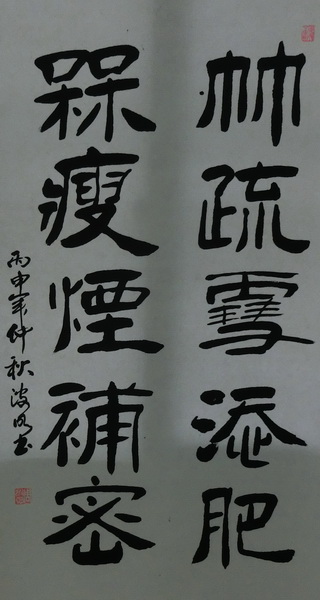 竹疏雪添肥
槑瘦煙補密
丙申年仲秋波书